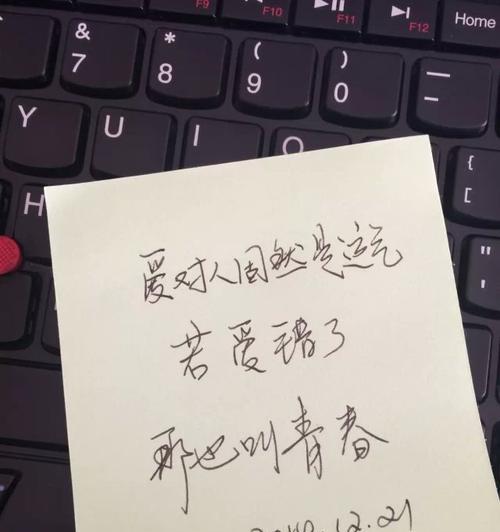 F9 F10 F11 F12 Home
& * ( )
7 8 9 0
Y U I O { [
H
爱对人固然是运气
若爱错了
那也叫青春
12.21